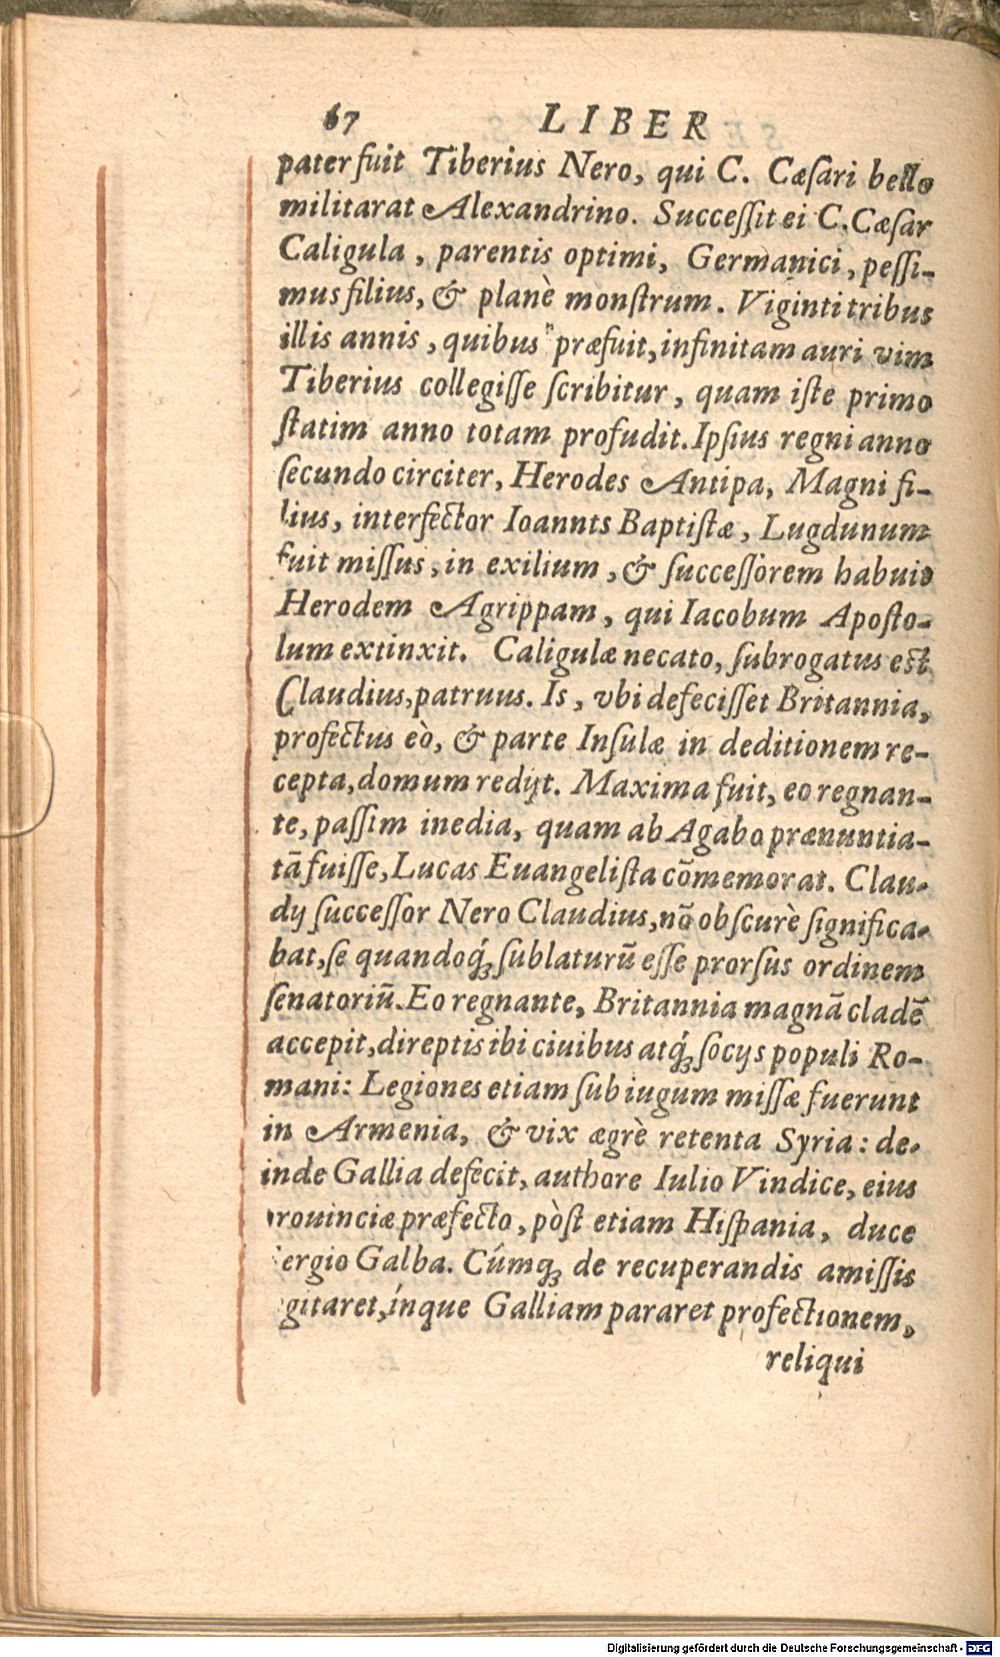 67 LIBER
pater fuit Tiberius Nero, qui C. Cæſari bello
militarat Alexandrino. Succeſſit ei C. Cæſar
Caligula, parentis optimi, Germanici, peſſi-
mus filius, & planè monſtrum. Viginti tribus
illis annis, quibus præfuit, infinitam auri vim
Tiberius collegiſſe ſcribitur, quam iſte primo
ſtatim anno totam profudit. Ipſius regni anno
ſecundo circiter, Herodes Antipa, Magni fi-
lius, interfector Ioannts Baptiſtæ, Lugdunum
fuit miſſus, in exilium, & ſucceſſorem habuit
Herodem Agrippam, qui Iacobum Apoſto-
lum extinxit. Caligulæ necato, ſubrogatus eſt
Claudius, patruus. Is, vbi defeciſſet Britannia,
profectus eò, & parte Inſulæ in deditionem re-
cepta, domum redijt. Maxima fuit, eo regnan-
te, paſſim inedia, quam ab Agabo prænuntia-
tã fuiſſe, Lucas Euangeliſta cõmemorat. Clau-
dij ſucceſſor Nero Claudius, nõ obſcurè ſignifica-
bat, ſe quandoq́ꝫ ſublaturũ eſſe prorſus ordinem
ſenatoriũ. Eo regnante, Britannia magnã cladẽ
accepit, direptis ibi ciuibus atq́ꝫ ſocijs populi Ro-
mani: Legiones etiam ſub iugum miſſæ fuerunt
in Armenia, & vix ægrè retenta Syria: de-
inde Gallia defecit, authore Iulio Vindice, eius
rouinciæ præfecto, pòſt etiam Hiſpania, duce
ergio Galba. Cúmqꝫ de recuperandis amiſſis
gitaret, ínque Galliam pararet profectionem,
reliqui
Digitalisierung gefördert durch die Deutsche Forschungsgemeinschaft - DFG